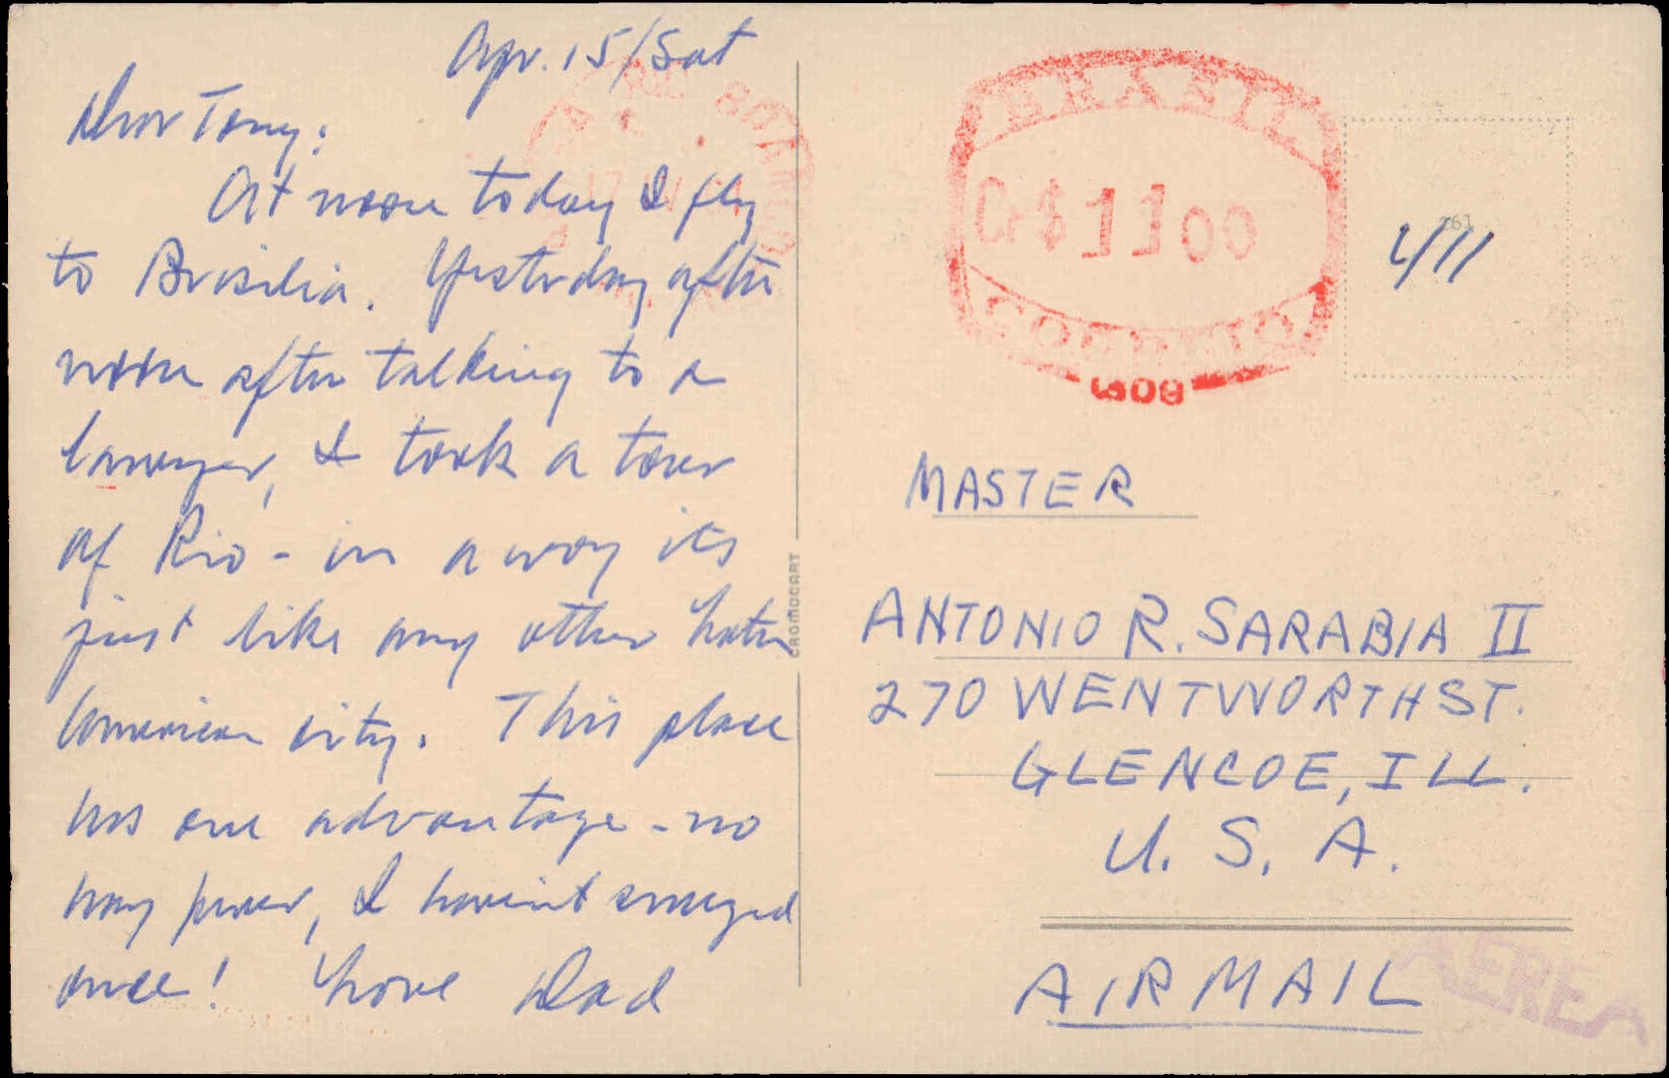 Apr. 15/Sat
Dear Tony:
At noon today I fly
to Brasilia. Yesterday after
noon after talking to a
lawyer, I took a tour
of Rio - in a way its
just like any other Latin
American city. This place
has one advantage - no
hay fever, I havent sneezed
once! Love Dad
CROMOCART
BRASIL
Cr$ 1100
CORREIO
261
4/11
MASTER
ANTONIO R. SARABIA II
270 WENTWORTH ST.
GLENCOE, ILL.
U. S. A.
AIRMAIL
AEREA